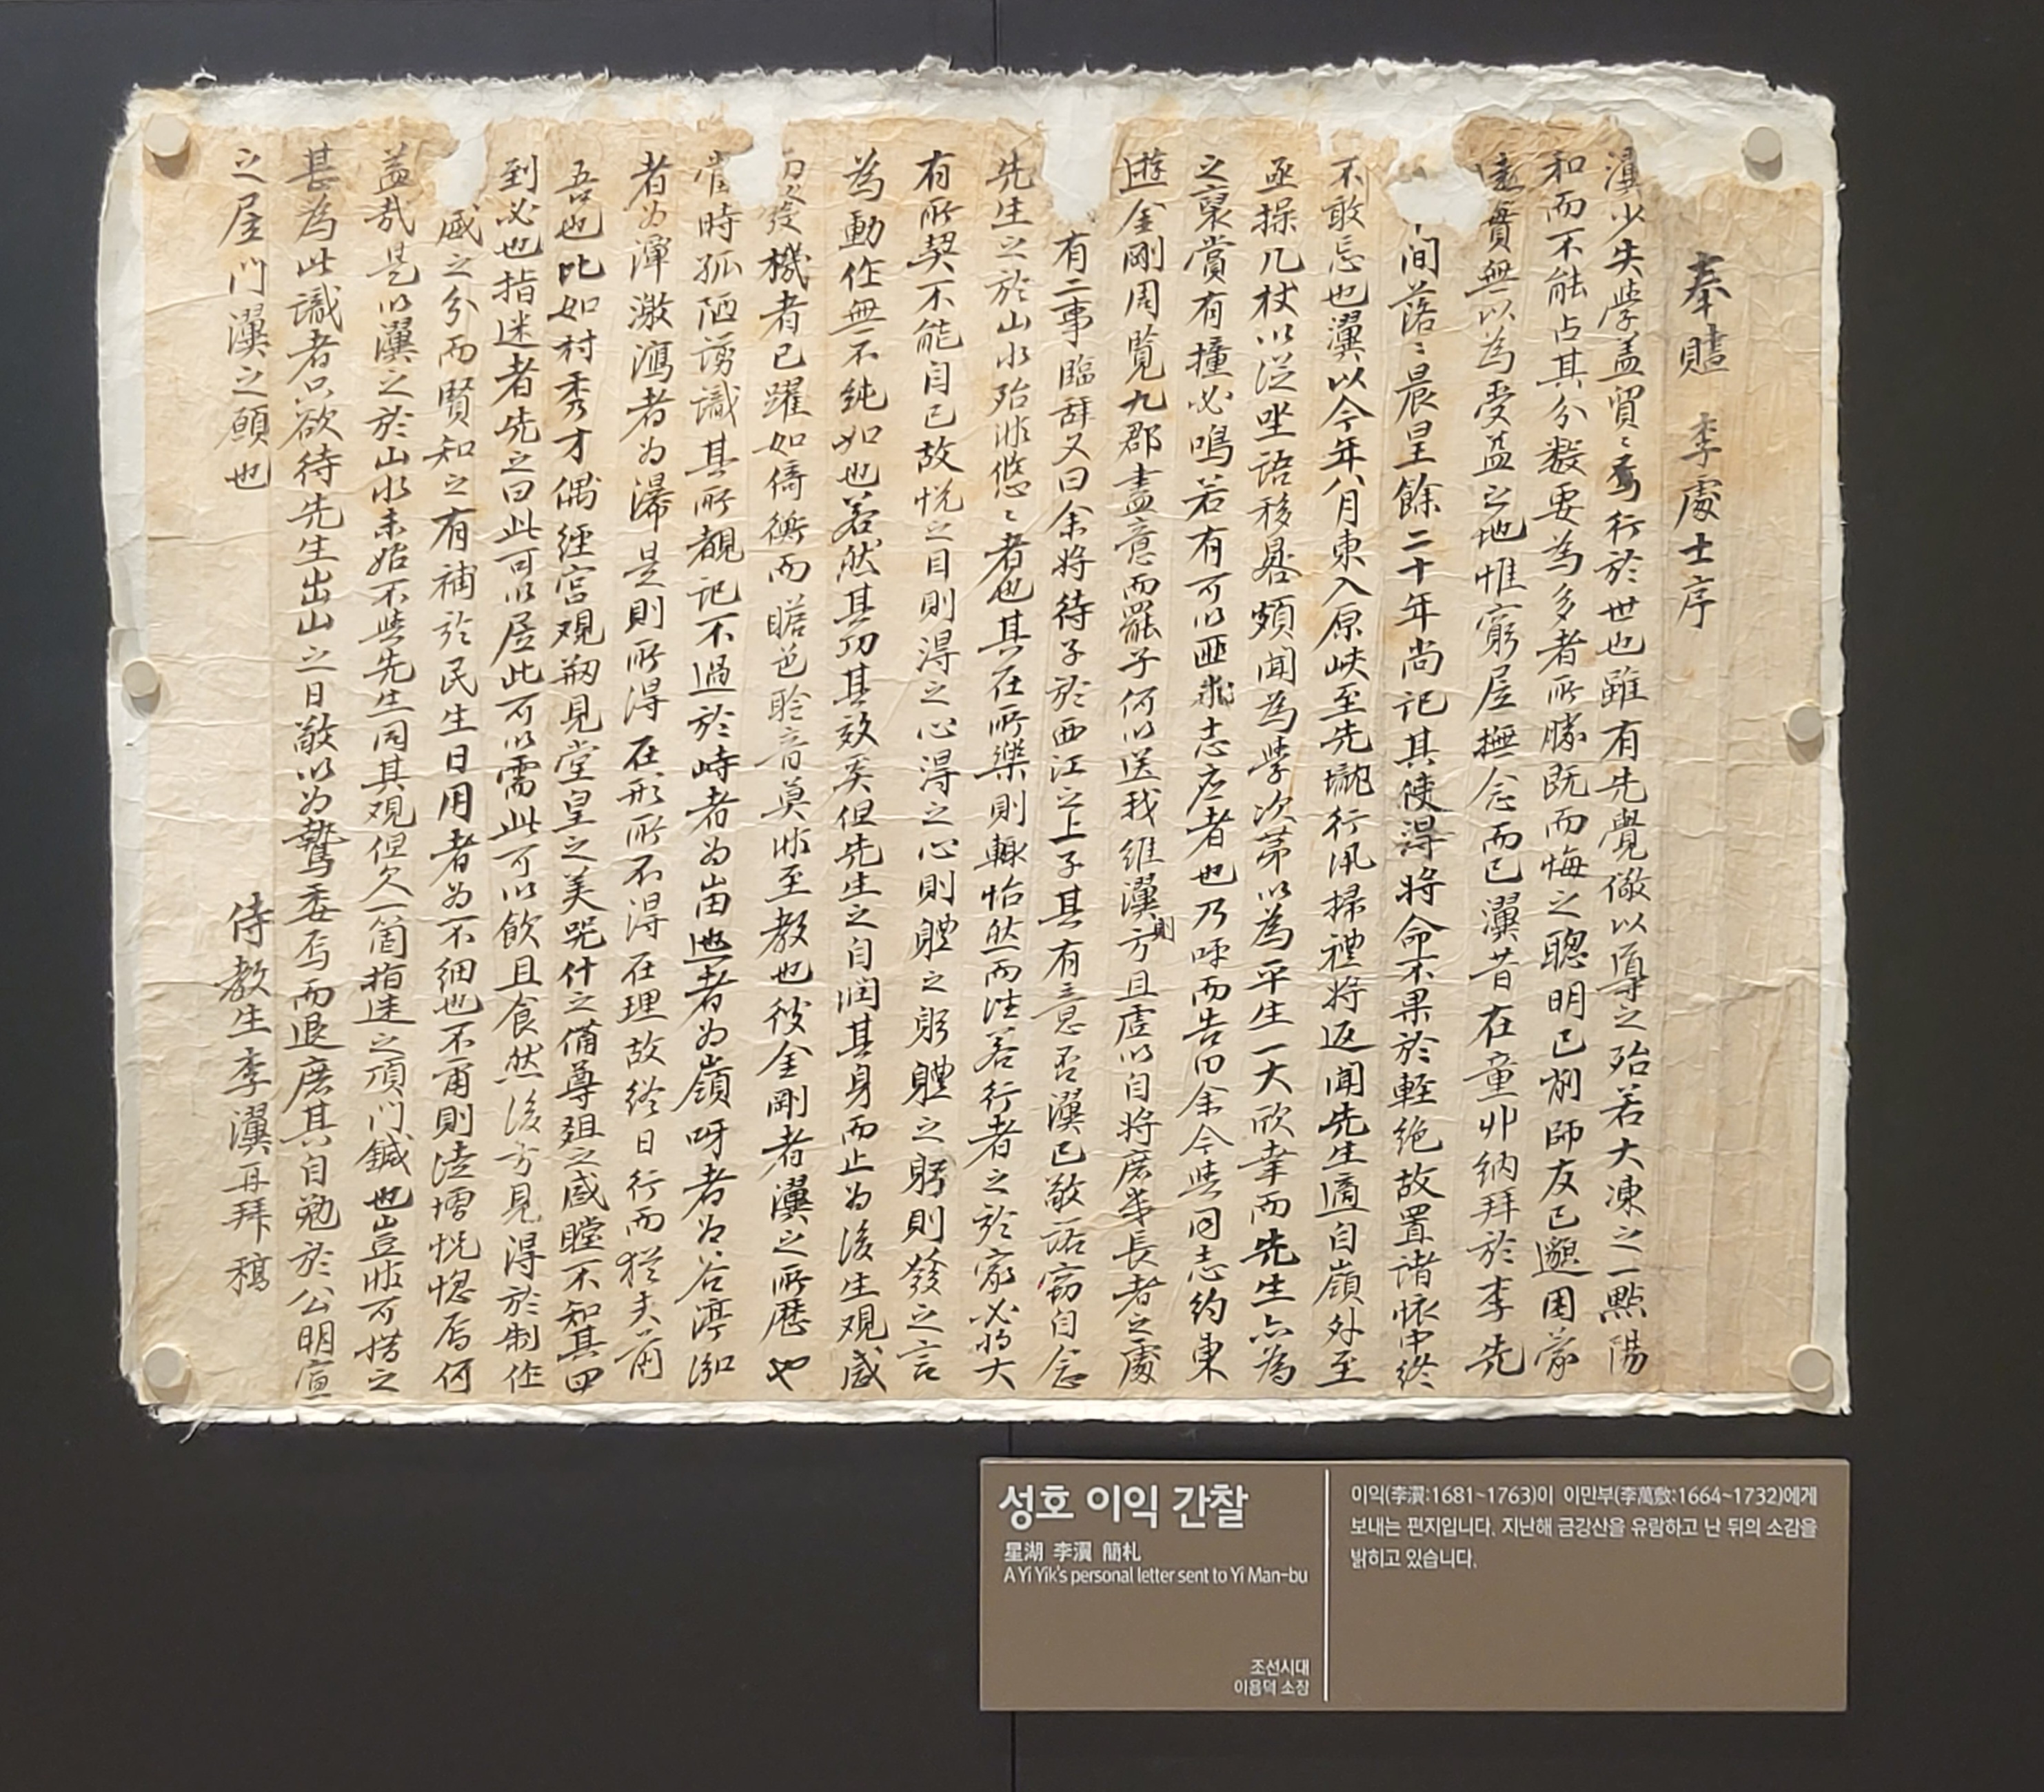 奉贐 李處士序
瀷少失學盖貿〻焉行於世也雖有先覺儆以導之殆若大凍之一點陽
和而不能占其分數要為多者所勝既而悔之聰明已剏師友已邈困蒙
遠實無以為受益之地惟窮居撫念而已瀷昔在童丱納拜於李先
間落〻晨星餘二十年尚記其使得將命不果於輕絶故置諸懷中終
不敢忘也瀷以今年八月東入原峽至先壠行汛掃禮將返聞先生適自嶺外至
亟操几杖以從坐語移晷頗聞為學次第以為平生一大欣幸而先生亦為
之裒賞有撞必鳴若有可以匪我志應者也乃呼而告曰余今與同志約東
遊金剛周覧九郡盡意而罷子何以送我維瀷則方且虛以自將庶幾長者之處
有二事臨辞又曰余將待子於西江之上子其有意否瀷已敬諾窃自念
先生之於山水殆非悠〻者也其在所樂則輙怡然而注若行者之於家必將大
有所契不能自已故悅之目則得之心得之心則體之躬體之躬則發之言
為動作無不純如也若然其功其效奚但先生之自潤其身而止為後生觀感
發機者已躍如倚衡而瞻色聆音莫非至教也彼金剛者瀷之所歷也
當時孤陋謏識其所覩記不過於峙者為崗迤者為嶺呀者為谷渟泓
者為潭激瀉者為瀑是則所得在形所不得在理故終日行而猶夫前
吾也比如村秀才偶經宮觀刱見堂皇之美咒什之備尊爼之盛瞠不知其四
到必也指迷者先之曰此可以居此可以需此可以飲且食然後方見得於制作
盛之分而賢知之有補於民生日用者為不細也不甯則淕擩恍惚焉何
益哉是以瀷之於山水未始不與先生同其观但欠一箇指迷之頂門鍼也豈非可惜之
甚為此識者只欲待先生出山之日敬以為贄委焉而退庶其自勉於公明宣
之居門瀷之願也
侍教生李瀷再拜稿
성호 이익 간찰
星湖 李瀷 簡札
A Yi Yik's personal letter sent to Yi Man-bu
조선시대
이음덕 소장
이익(李瀷:1681~1763)이 이만부(李萬敷:1664~1732)에게
보내는 편지입니다. 지난해 금강산을 유람하고 난 뒤의 소감을
밝히고 있습니다.